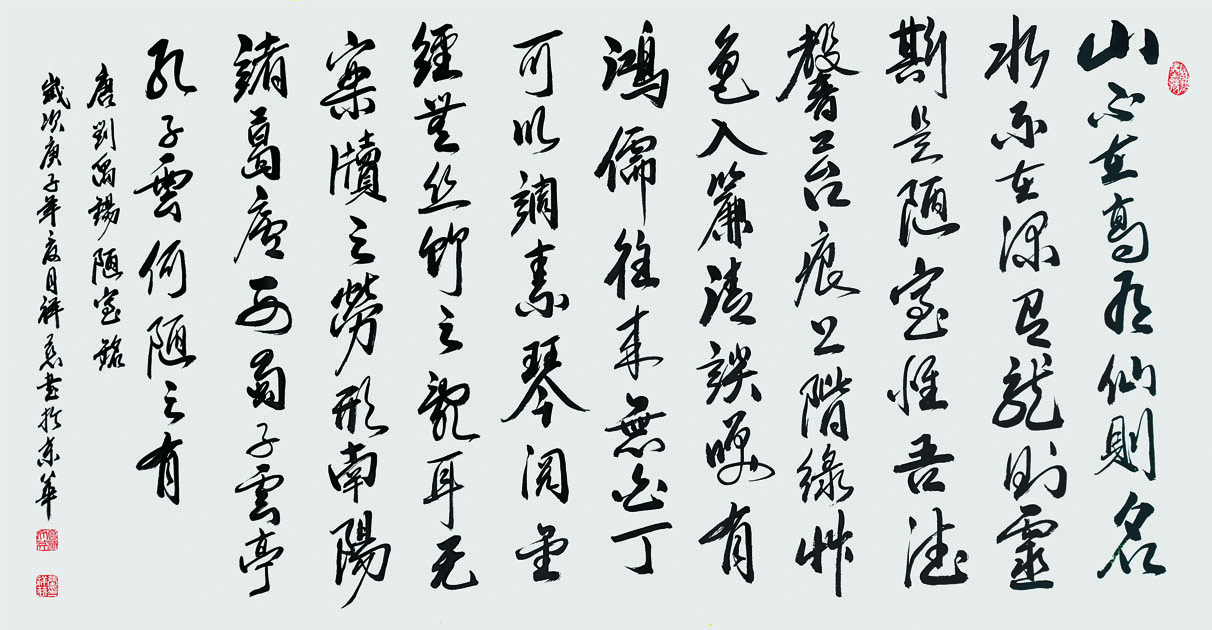 山不在高有仙則名
水不在深有龍則靈
斯是陋室惟吾德
馨苔痕上階綠艸
色入簾清談咲有
鴻儒往來無白丁
可以調素琴閱金
經無丝竹之亂耳无
案牘之勞形南陽
諸葛廬西蜀子雲亭
孔子雲何陋之有
唐劉禹錫陋室銘
歲次庚子年夏月祥書於京華